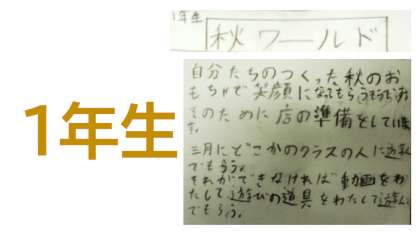 1年生
1年生
秋ワールド
自分たちのつくった秋のお
もちゃで笑顔になってもらう
そのために店の準備をしていま
す。
三月にどこかのクラスの人に遊ん
でもらう。
それができなければ動画をわ
たして遊びの道具をわたして遊ん
でもらう。